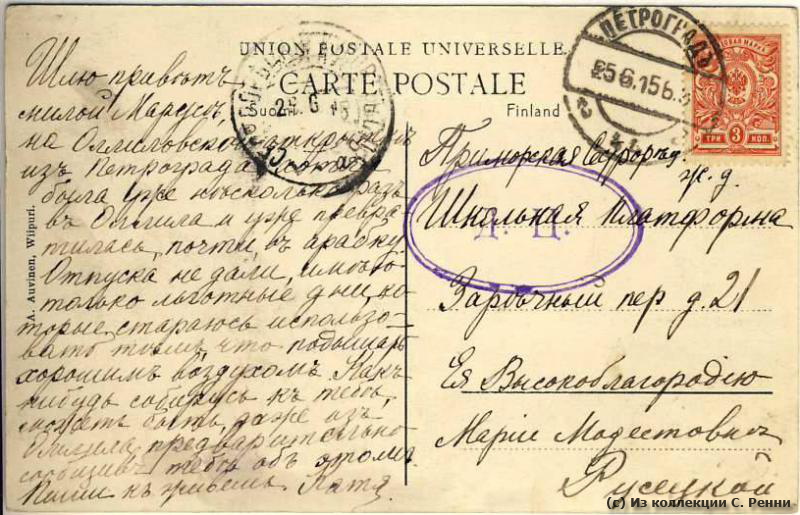 UNION POSTALE UNIVERSELLE.
CARTE POSTALE
Finland
ПЕТРОГРАДЪ
25.6.15
25 6 15
МАРКА
ТРИ 3 КОП.
A. Auvinen, Wiipuri.
Шлю привѣтъ
милой Марусѣ,
на Оллиловской открыткѣ
изъ Петрограда.
была уже нѣсколько разъ
въ Оллила и уже превра
тилась, почти, въ арабку.
Отпуска не дали, имѣю
только льготные дни, ко
торые, стараюсь использо-
вать тѣмъ, что подышать
хорошимъ воздухомъ. Какъ
нибудь соберусь къ тебѣ,
можетъ быть, даже изъ
Оллила, предварительно
сообщивъ тебѣ объ этомъ.
Пиши Катя
Приморская ж. д.
Школьная Платформа
пер д. 21
Ея Высокоблагородію
Маріи Модестовнѣ
Русецкой
(c) Из коллекции С. Ренни